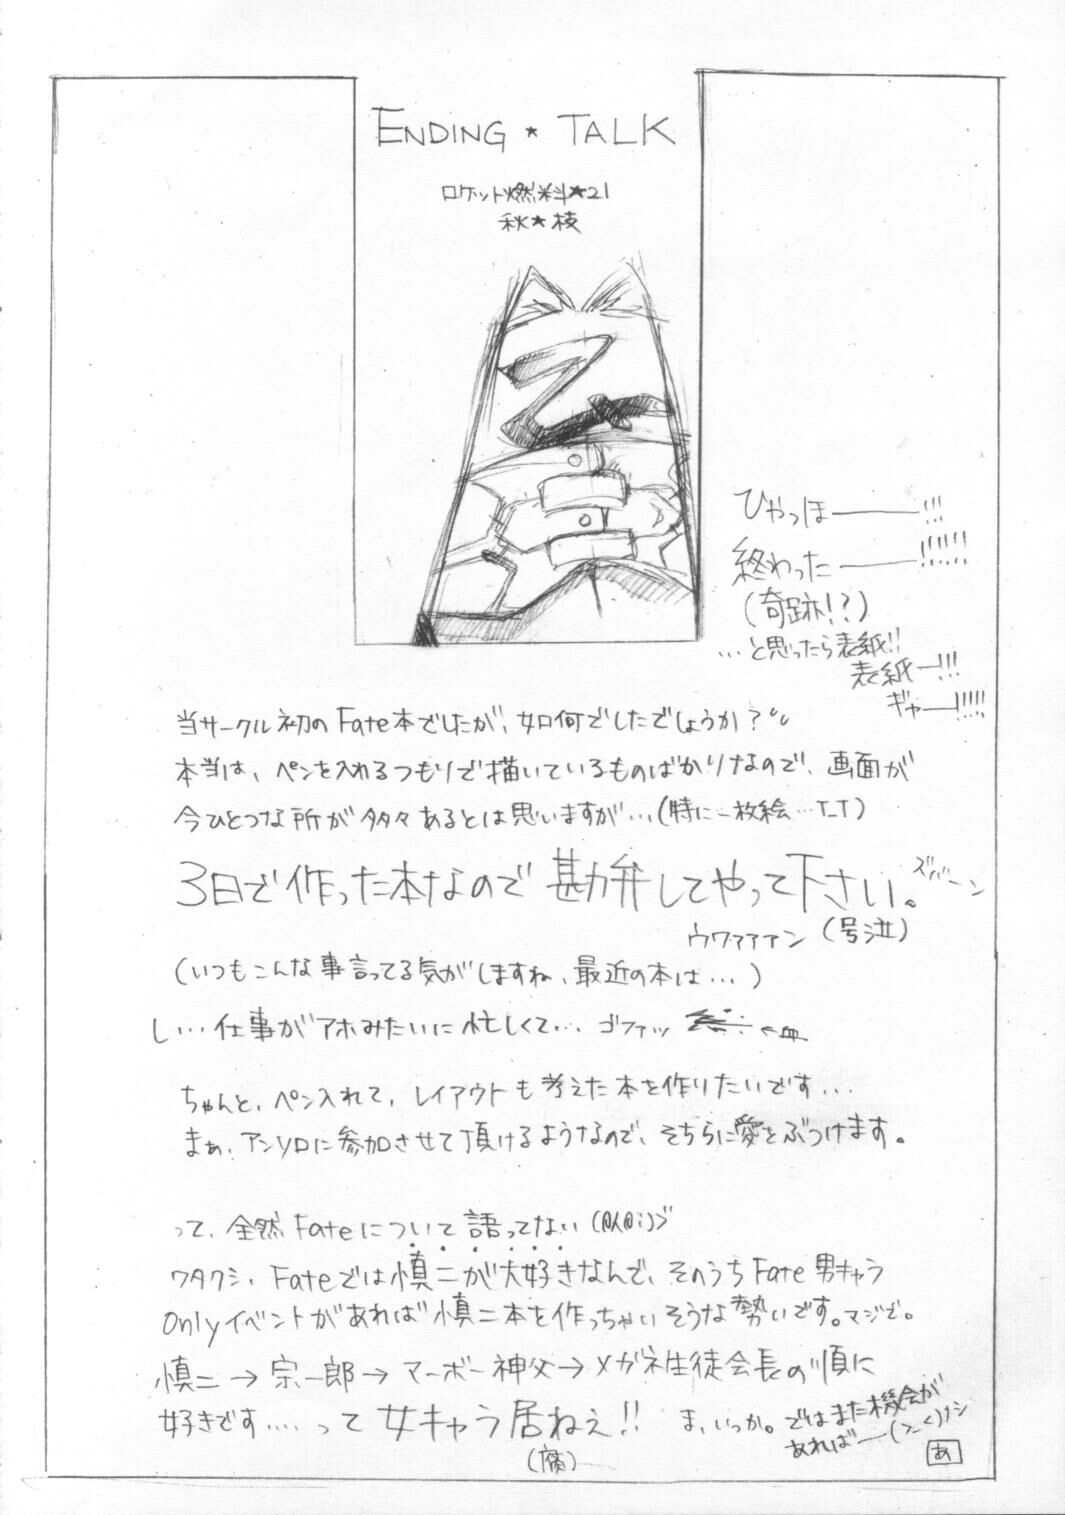 ENDING ★ TALK
ロケット燃料★21
秋★枝
ひやっほ―――!!!
終わった―――!!!!!!
(奇跡!?)
…と思ったら表紙!!
表紙―!!!
ギャ―!!!!!
当サークル初のFate本でしたが、如何でしたでしょうか?
本当は、ペンを入れるつもりで描いているものばかりなので、画面が
今ひとつな所が多々あるとは思いますが…(特に一枚絵…T_T)
3日で作った本なので勘弁してやって下さい。ズバーン
ウワァァァン(号泣)
(いつもこんな事言ってる気がしますね、最近の本は…)
し…仕事がアホみたいに忙しくて… ゴファッ ←血
ちゃんと、ペン入れて、レイアウトも考えた本を作りたいです…
まぁ、アンソロに参加させて頂けるようなので、そちらに愛をぶつけます。
って、全然Fateについて語ってない
ワタクシ、Fateでは慎二が大好きなんで、そのうちFate男キャラ
Onlyイベントがあれば慎二本を作っちゃいそうな勢いです。マジで。
慎二→宗一郎→マーボー神父→メガネ生徒会長の順に
好きです…. って女キャラ居ねぇ!!
(腐)
ま、いっか。ではまた機会が
あれば―(>_<)ノシ
あ